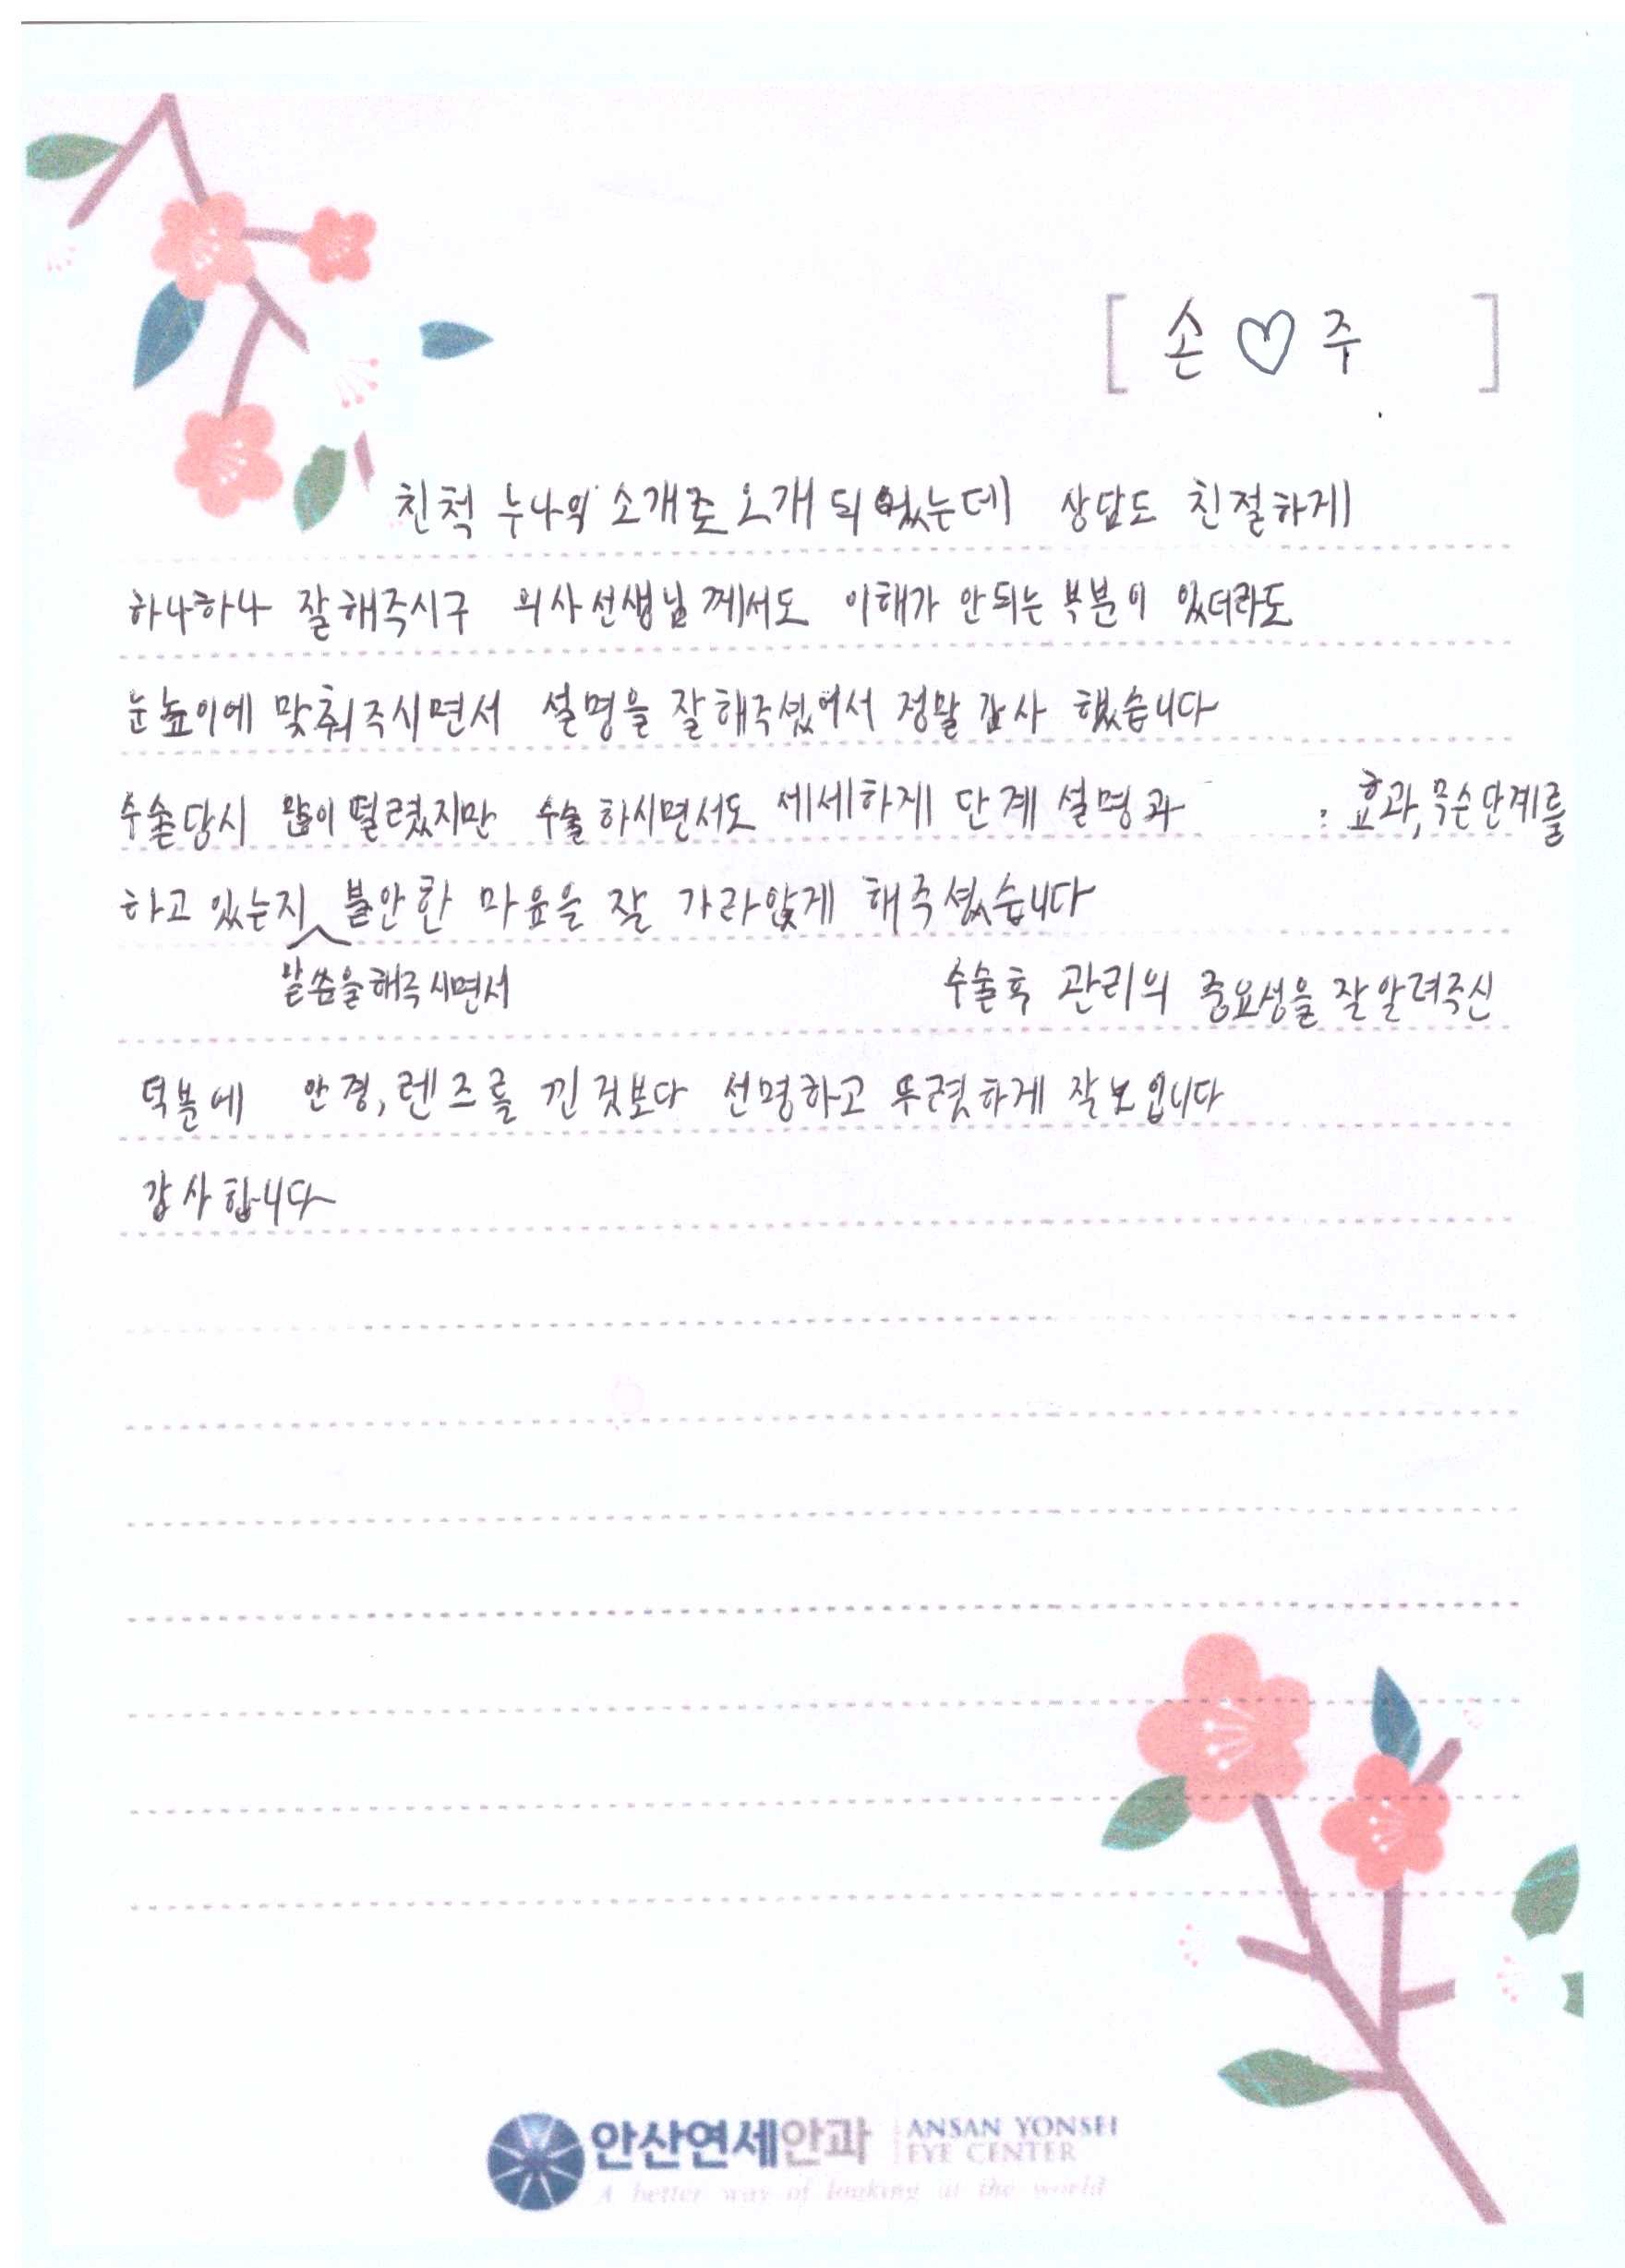 [ 손 ♡ 주 ]
친척 누나의 소개로 오게 되었는데 상담도 친절하게
하나하나 잘해주시구 의사선생님께서도 이해가 안되는 부분이 있더라도
눈높이에 맞춰주시면서 설명을 잘해주셨어서 정말 감사 했습니다
수술당시 많이 떨렸지만 수술 하시면서도 세세하게 단계 설명과 효과, 무슨단계를
하고 있는지 불안한 마음을 잘 가라앉게 해주셨습니다
말씀을해주시면서 수술후 관리의 중요성을 잘알려주신
덕분에 안경, 렌즈를 낀것보다 선명하고 뚜렷하게 잘보입니다
감사합니다
안산연세안과 ANSAN YONSEI
EYE CENTER
A better way of looking at the world